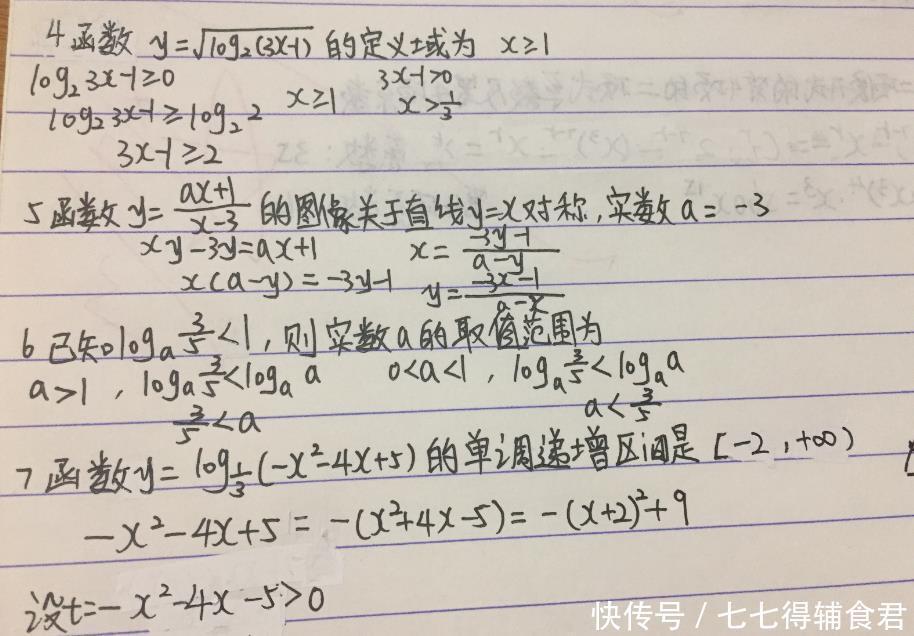 4 函数 y=√log₂(3x-1) 的定义域为 x≥1
log₂3x-1≥0 3x-1>0
log₂3x-1≥log₂2 x≥1 x>1/3
3x-1≥2
5 函数 y=(ax+1)/(x-3) 的图像关于直线y=x对称,实数a= 3
xy-3y=ax+1 x=(-3y-1)/(a-y)
x(a-y)=-3y-1 y=(-3x-1)/(a-x)
6 已知logₐ3/5<1,则实数a的取值范围为
a>1,logₐ3/5<logₐa 0<a<1,logₐ3/5<logₐa
3/5<a a<3/5
7 函数y=log_{1/3}(-x²-4x+5)的单调递增区间是 [-2,+∞)
-x²-4x+5=-(x²+4x-5)=-(x+2)²+9
设t=-x²-4x-5>0
快传号/七七得辅食君